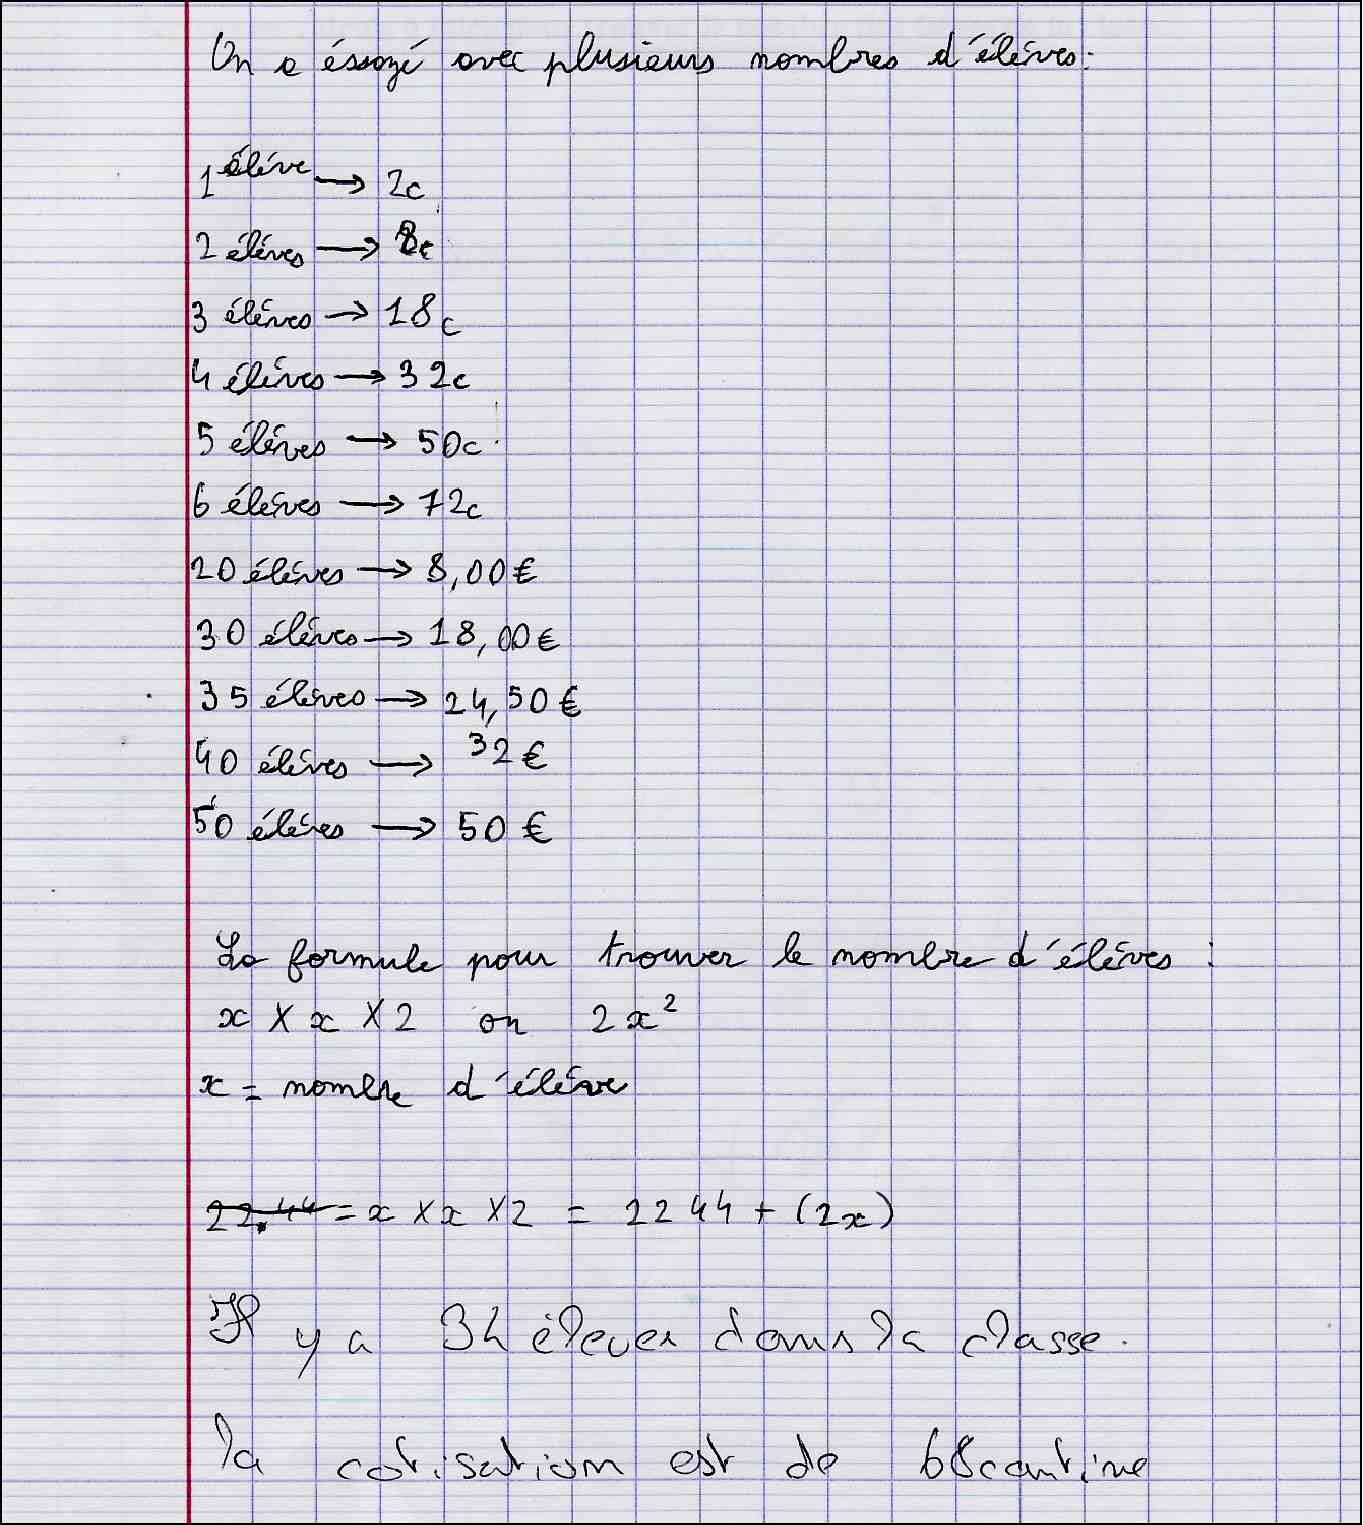 On a éssayé avec plusieurs nombres d'éléves:
1 éléve → 2c
2 éléves → 8c
3 éléves → 18c
4 éléves → 32c
5 éléves → 50c
6 éléves → 72c
20 éléves → 8,00€
30 éléves → 18,00€
35 éléves → 24,50€
40 éléves → 32€
50 éléves → 50€
La formule pour trouver le nombre d'éléves :
x X x X 2 ou 2x²
x = nombre d'éléve
22.44 = x X x X 2 = 2244 + (2x)
Il y a 34 élever dans la classe.
la cotisation est de 68 cantine